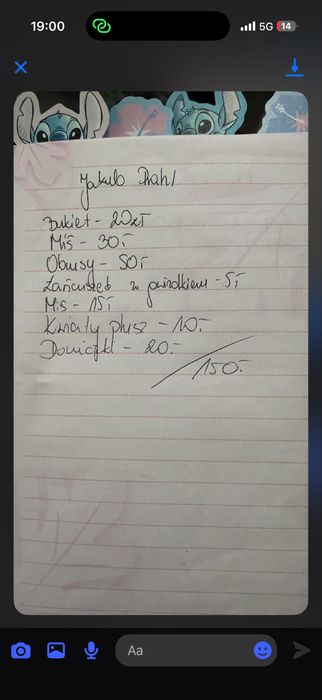 19:00
5G 14
Jakub Prahl
Bukiet - 20zł
Miś - 30.-
Obrusy - 50.-
Łańcuszek z aniołkiem - 5.-
Mis - 15.-
Kwiaty plusz - 10.-
Doniczki - 20.-
150.-
Aa